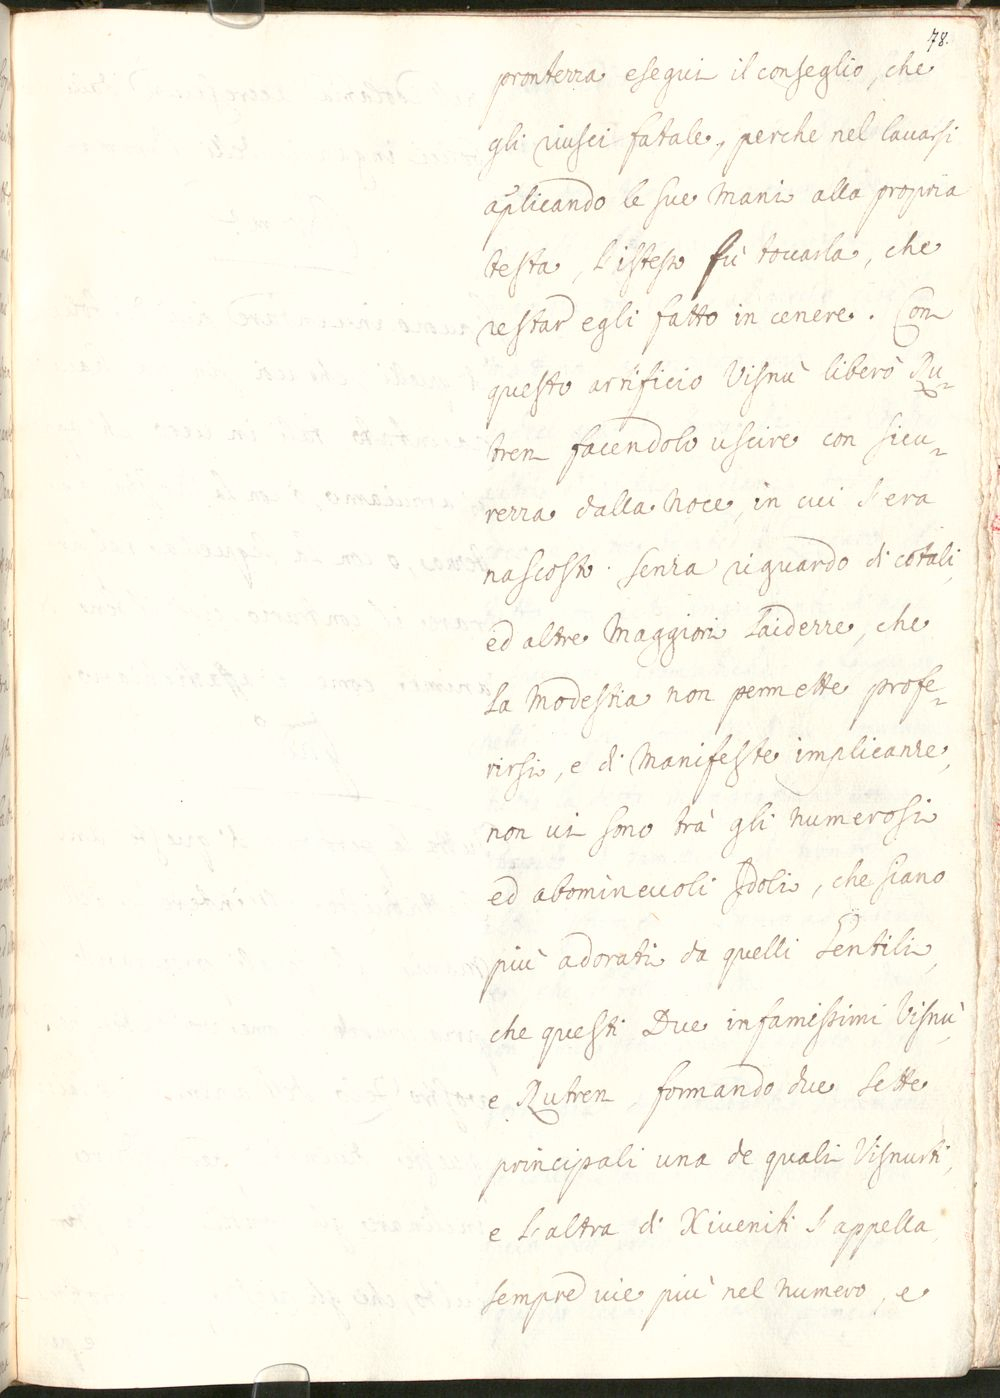 78.
prontezza eseguì il conseglio, che
gli riuscì fatale, perche nel lauarsi
applicando le sue mani alla propria
testa, l'istesso fù toccarla, che
restar egli fatto in cenere. Con
questo artificio Visnù liberò Ru=
tren facendolo uscire con sicu=
rezza dalla noce, in cui s'era
nascosto. Senza riguardo di cotali,
ed altre maggiori laidezze, che
la modestia non permette profe=
rirsi, e di manifeste implicanze,
non ui sono trà gli numerosi
ed abomineuoli Idoli, che siano
più adorati da quelli Gentili,
che questi Due infamissimi Visnù,
e Rutren, formando due sette
principali una de quali Visnusti,
e l'altra di Xiueniti s'appella,
sempre uie più nel numero, e